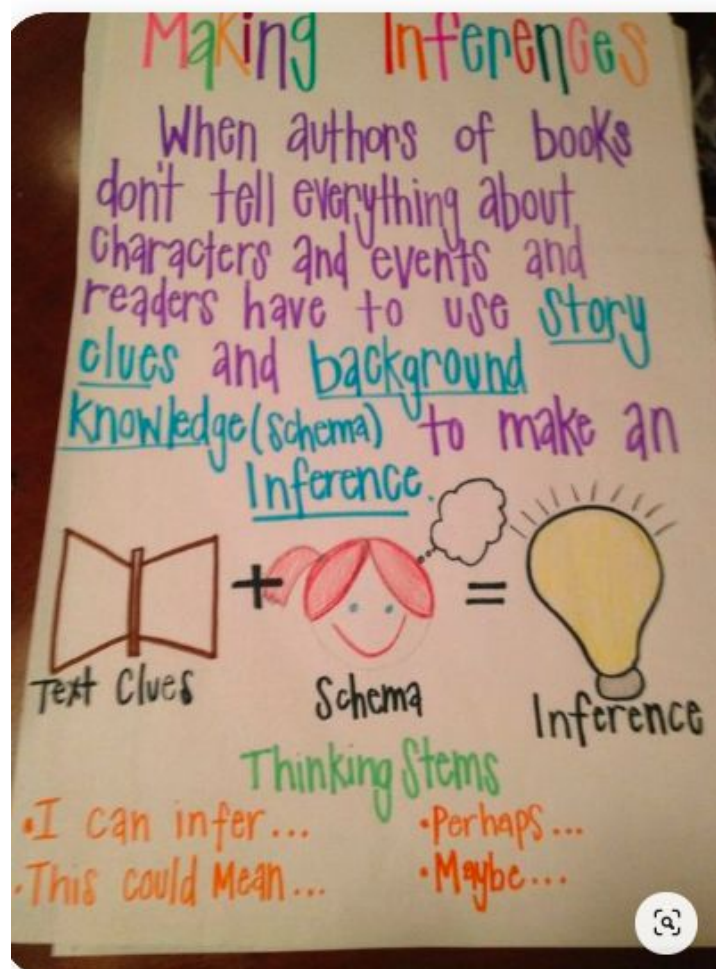 Making Inferences
When authors of books
don't tell everything about
characters and events and
readers have to use story
clues and background
knowledge (schema) to make an
Inference.
+ =
Text Clues Schema Inference
Thinking Stems
•I can infer... •Perhaps...
•This could Mean... •Maybe...